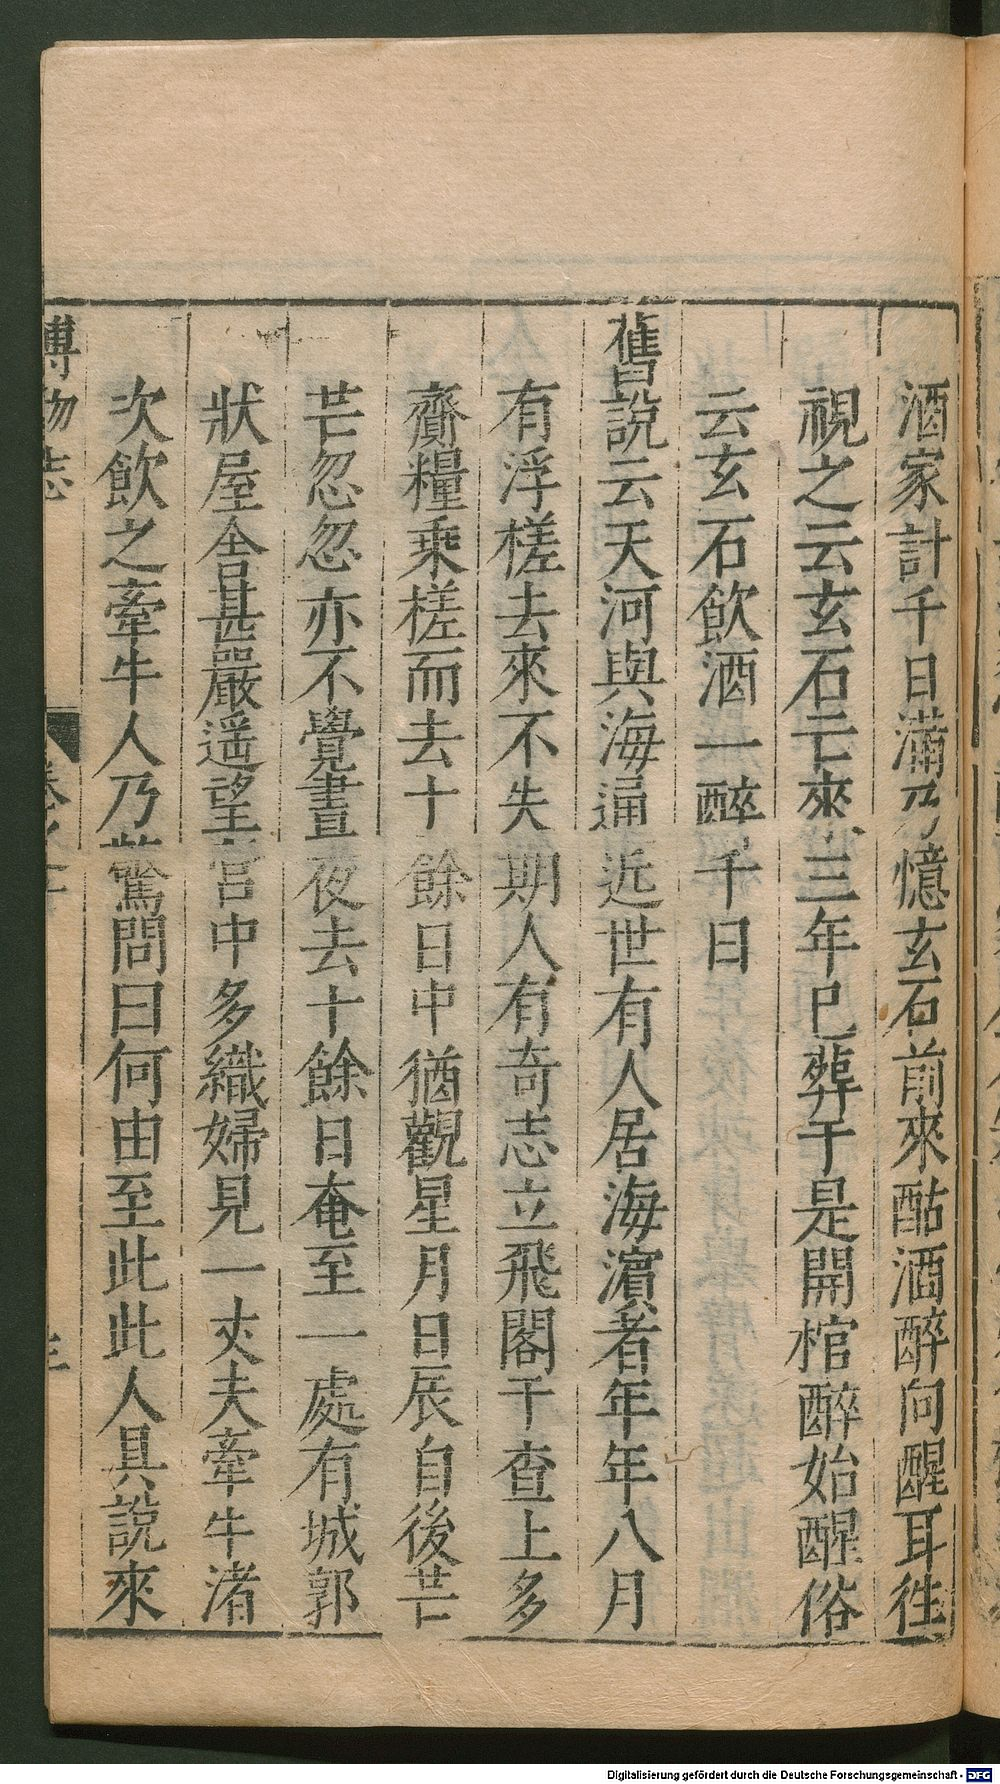 酒家計千日滿乃憶玄石前來酤酒醉向醒耳徃
視之云玄石亡來三年已葬于是開棺醉始醒俗
云玄石飲酒一醉千日
舊說云天河與海通近世有人居海濵者年年八月
有浮槎去來不失期人有奇志立飛閣于查上多
齎糧乘槎而去十餘日中猶觀星月日辰自後芒
芒忽忽亦不覺晝夜去十餘日奄至一處有城郭
狀屋舍甚嚴遥望宮中多織婦見一丈夫牽牛渚
次飲之牽牛人乃驚問曰何由至此此人具說來
博物志
Digitalisierung gefördert durch die Deutsche Forschungsgemeinschaft - DFG